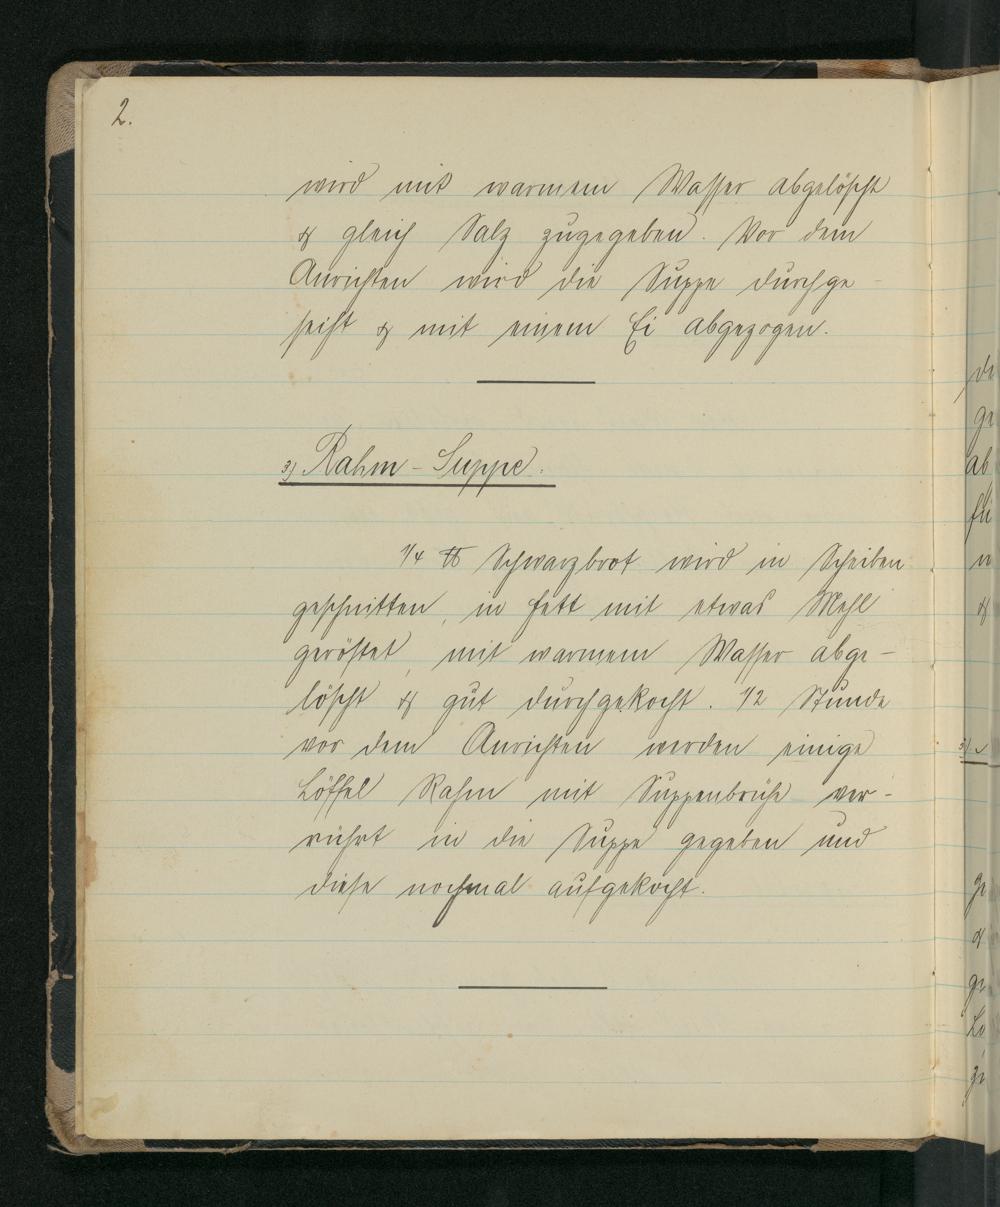 2.
wird mit warmem Wasser abgelöscht
& gleich Salz zugegeben. Vor dem
Anrichten wird die Suppe durchge
seiht & mit einem Ei abgezogen.
3) Rahm-Suppe.
1/4 ℔ Schwarzbrot wird in Scheiben
geschnitten, in Fett mit etwas Mehl
geröstet, mit warmem Wasser abge-
löscht & gut durchgekocht. 1/2 Stunde
vor dem Anrichten werden einige
Löffel Rahm mit Suppenbrühe ver-
rührt in die Suppe gegeben und
diese nochmal aufgekocht.